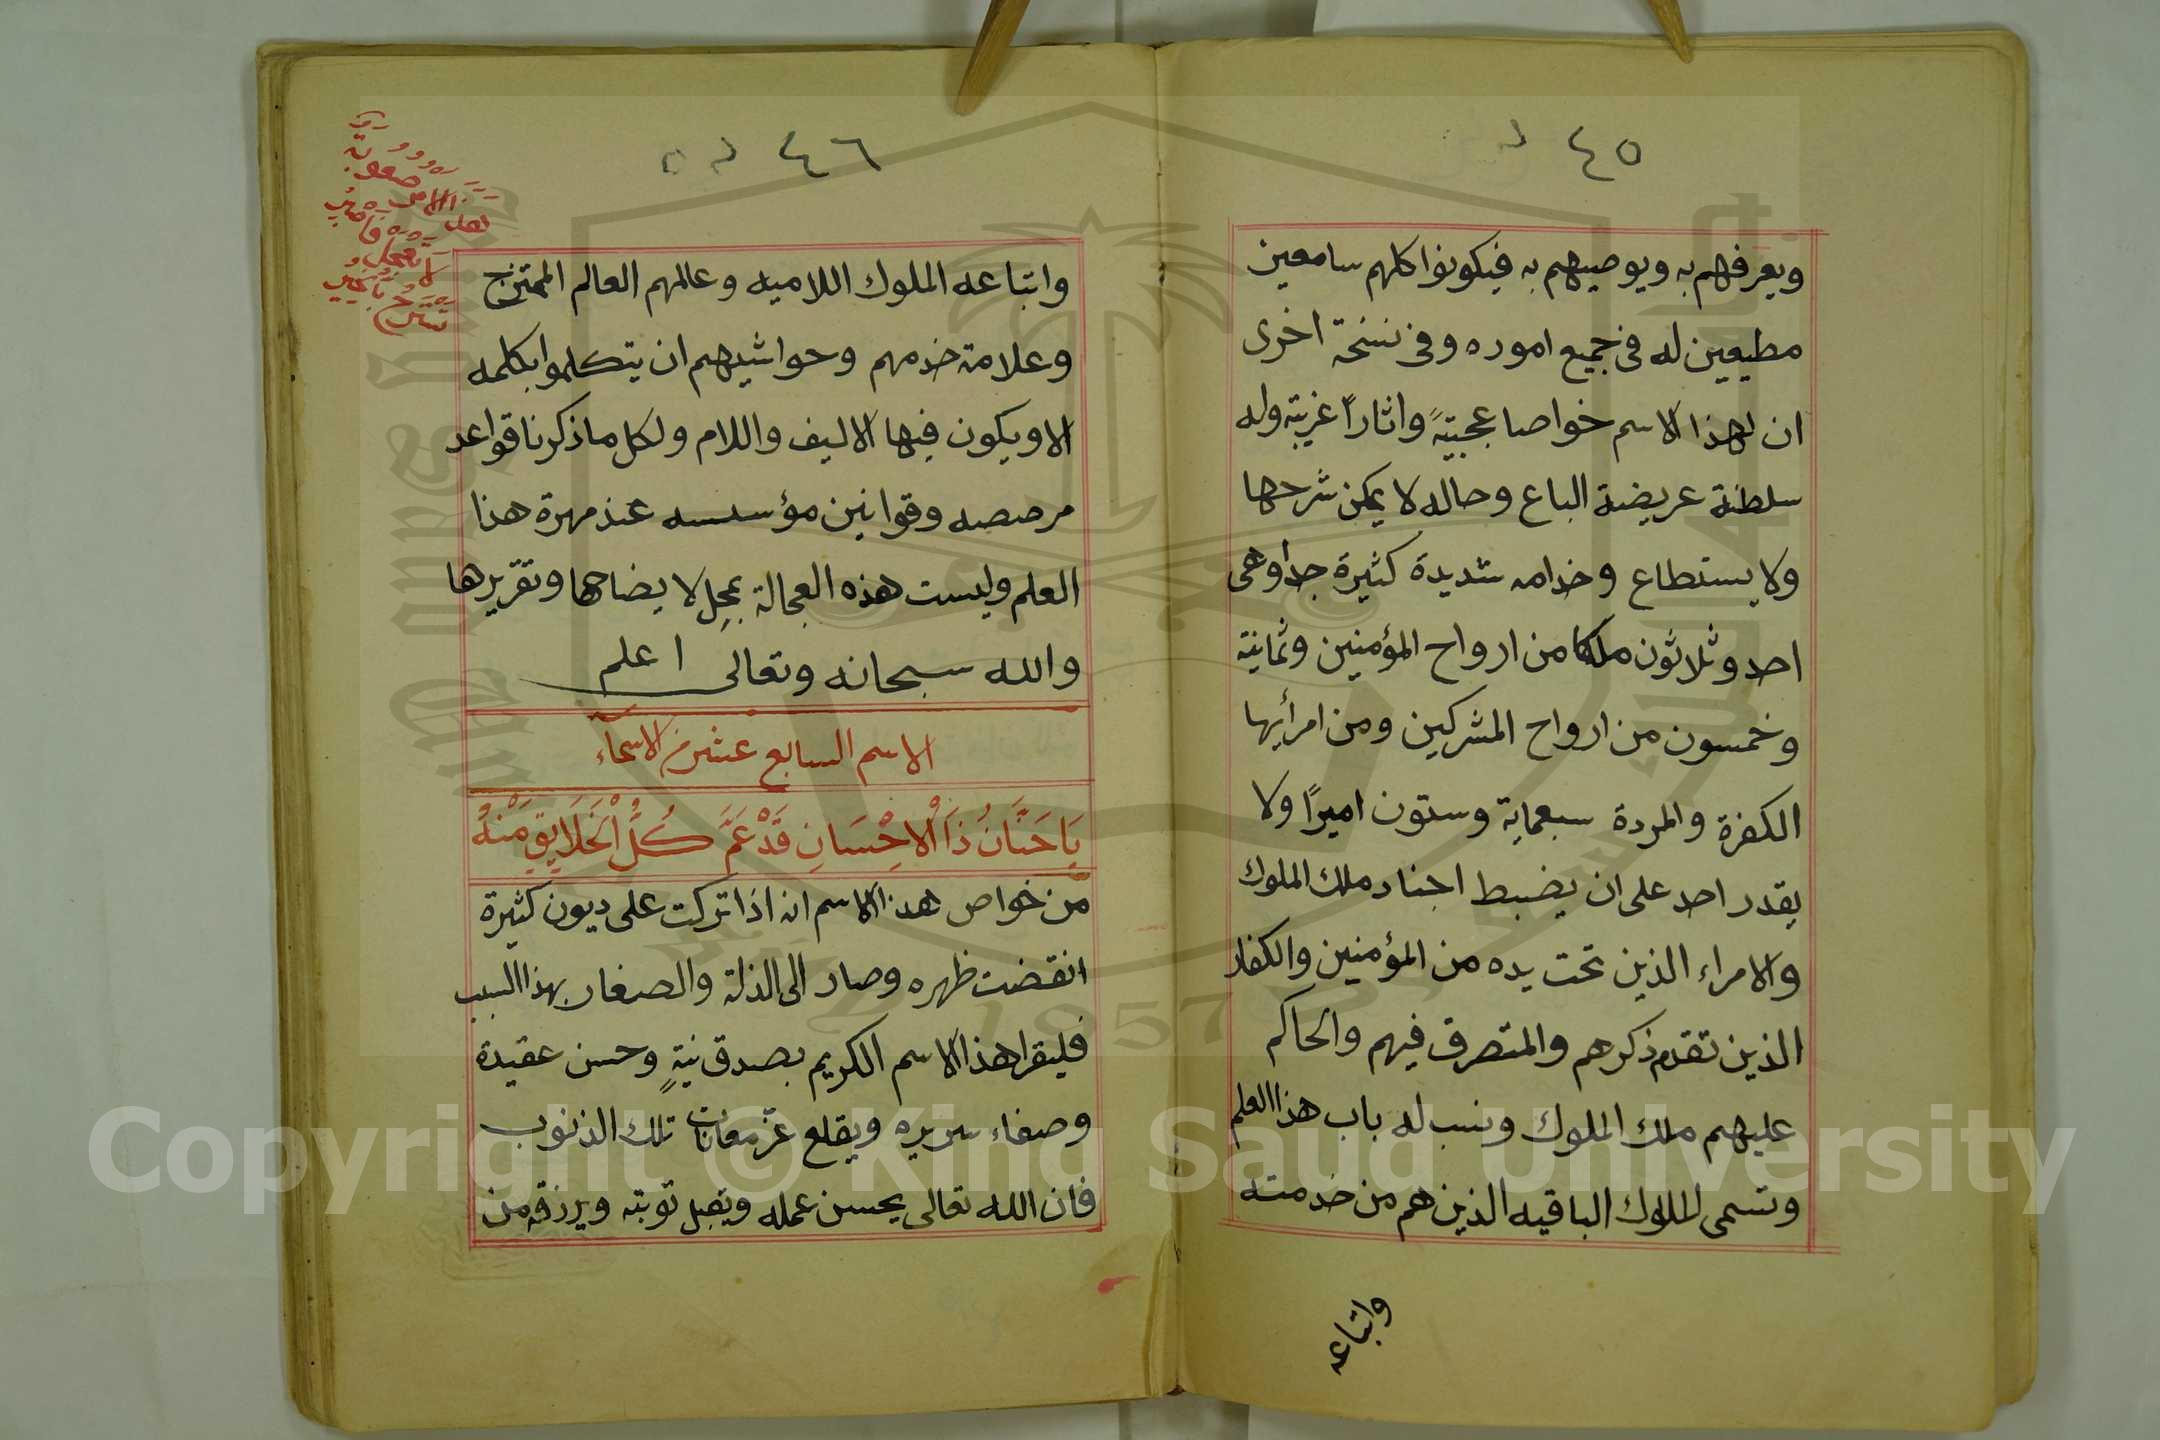 ٤٥
ويعرفهم به ويوصيهم به فيكونوا كلهم سامعين
مطيعين له فى جميع اموره وفى نسخة اخرى
ان لهذا الاسم خواصا عجيبةً واثاراً غريبة وله
سلطنة عريضة الباع وحاله لا يمكن شرحها
ولا يستطاع وخدامه شديدة كثيرة جدا وهى
احد وثلاثون ملكا من ارواح المؤمنين وثمانية
وخمسون من ارواح المشركين ومن امرأيها
الكفرة والمردة سبعماية وستون اميرًا ولا
يقدر احد على ان يضبط اجناد ملك الملوك
والامراء الذين تحت يده من المؤمنين والكفار
الذين تقدم ذكرهم والمتصرف فيهم والحاكم
عليهم ملك الملوك ونسب له باب هذا العلم
وتسمى الملوك الباقيه الذين هم من خدمته
واتباعه
٤٦
صعوبة
الامر
واتباعه الملوك اللاميه وعالمهم العالم الممتزج
وعلامة خدمهم وحواشيهم ان يتكلموا بكلمه
الا ويكون فيها الاليف واللام ولكل ما ذكرنا قواعد
مرصصه وقوانين مؤسسه عند مهرة هذا
العلم وليست هذه العجالة بمحِل لايضاحها وتقريرها
والله سبحانه وتعالى اعلم
الاسم السابع عشر من الاسماء
يَا حَنَّانُ ذَا الْاِحْسَانِ قَدْ عَمَّ كُلَّ الْخَلَايِقِ مَنُّهُ
من خواص هذا الاسم انه اذا تركت على ديون كثيرة
انقضت ظهره وصار الى الذلة والصغار بهذا السبب
فليقرا هذا الاسم الكريم بصدق نيةٍ وحسن عقيدة
وصفاء سريره ويقلع عن مقانات تلك الذنوب
فان الله تعالى يحسن عمله ويقبل توبته ويرزقه من
Copyright © King Saud University
1957